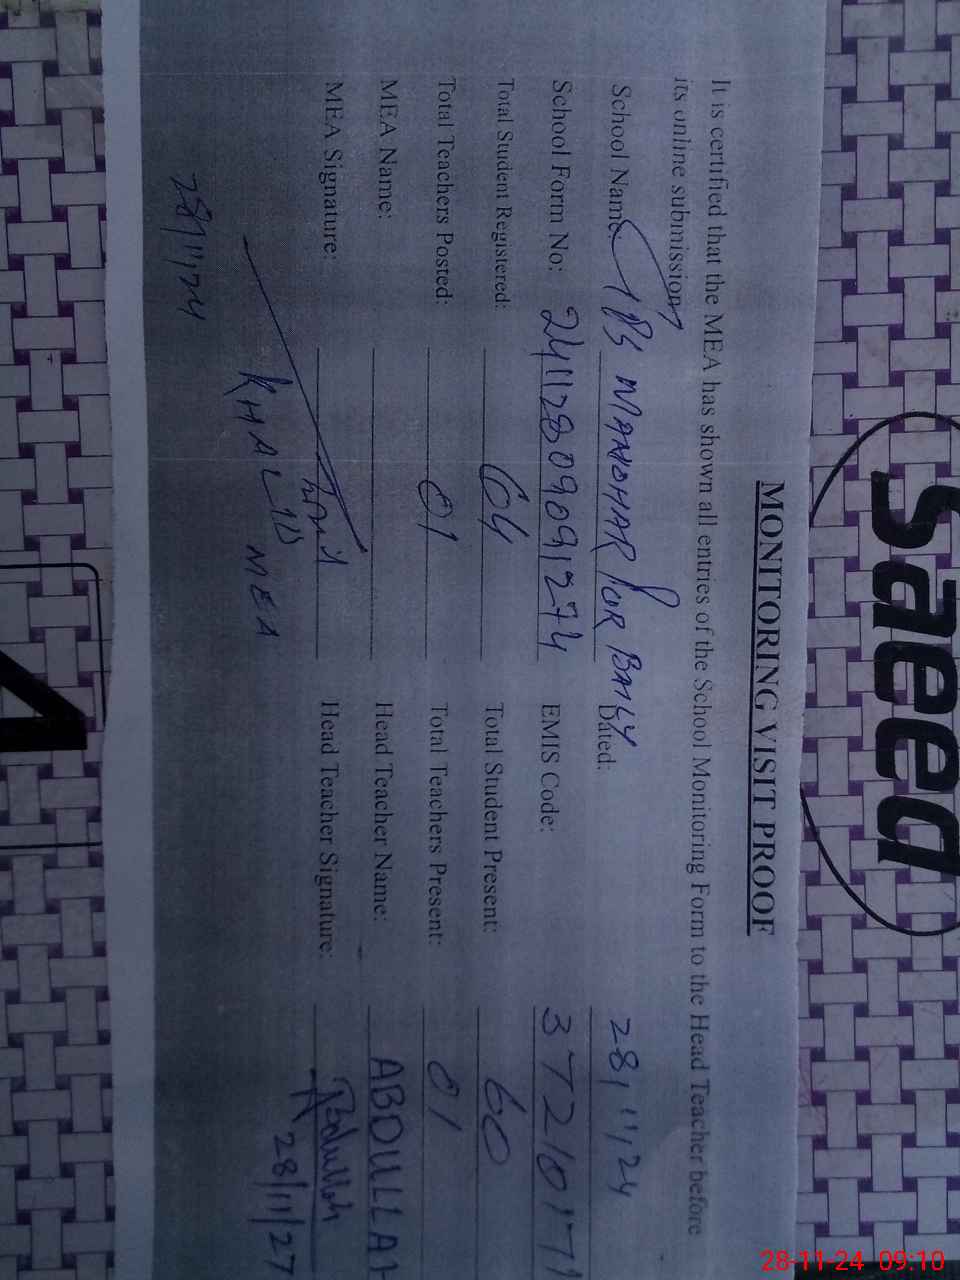 Saeed
MONITORING VISIT PROOF
It is certified that the MEA has shown all entries of the School Monitoring Form to the Head Teacher before
its online submission
School Name: GPS MANOHAR PUR BAILY Dated: 28/11/24
School Form No: 2411280909091274 EMIS Code: 37210171
Total Student Registered: 64 Total Student Present: 60
Total Teachers Posted: 01 Total Teachers Present: 01
MEA Name: Head Teacher Name: ABDULLAH
MEA Signature: Head Teacher Signature: Abdullah
KHALID MEA 28/11/27
28/11/24
28-11-24 09:10